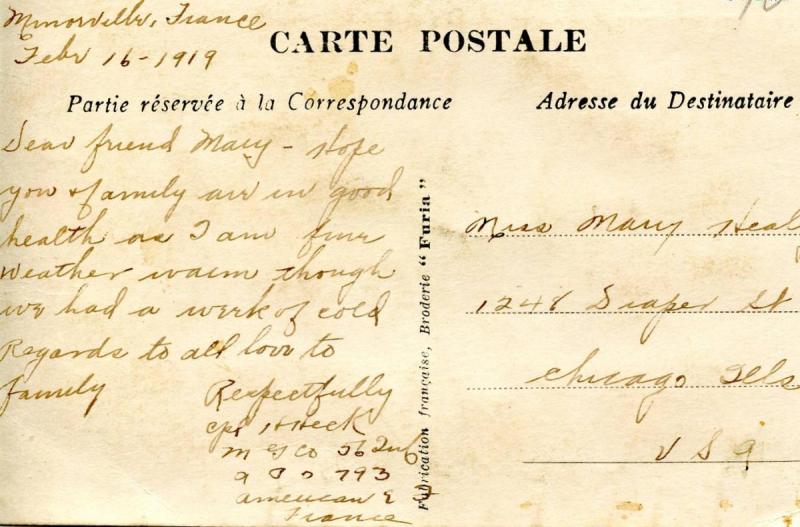 Minorville, France
Febr 16 - 1919
CARTE POSTALE
Partie réservée à la Correspondance
Adresse du Destinataire
Dear friend Mary - Hope
you & family are in good
health as I am fine
Weather warm though
we had a week of cold
Regards to all love to
family
Respectfully
cpl H Heck
M G Co 56 Inf
A P O 793
American E F
France
Fabrication française, Broderie "Furia"
Miss Mary Healy
1248 Draper St
Chicago Ills
U S A